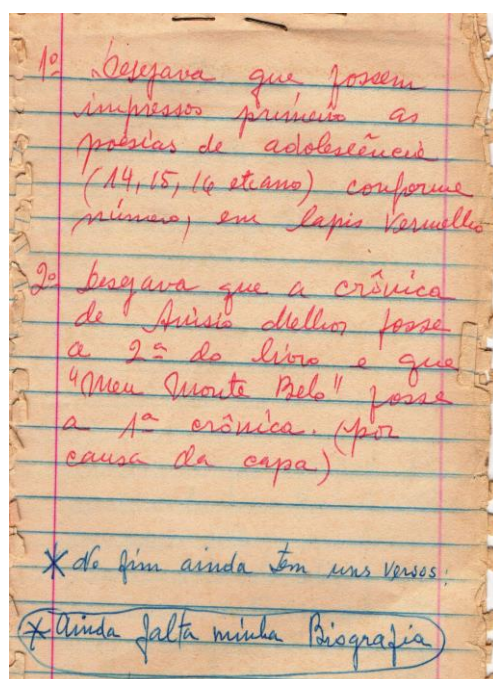 1º Desejava que fossem
impressos primeiro as
poesias de adolescência
(14, 15, 16 etc ano) conforme
número, em lapis vermelho
2º Desejava que a crônica
de Anisio Mellior fosse
a 2ª do livro e que
"Meu Monte Belo" fosse
a 1ª crônica. (por
causa da capa)
* No fim ainda tem uns versos!
* Ainda falta minha Biografia